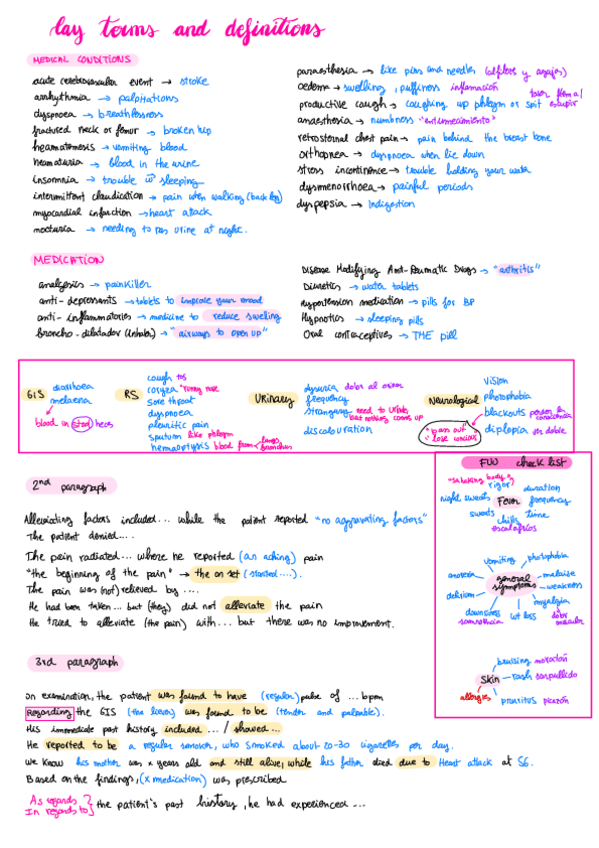 lay terms and definitions
MEDICAL CONDITIONS
acute cerebrovascular event → stroke
arrhythmia → palpitations
dyspnoea → breathlessness
fractured neck or femur → broken hip
heamatemesis → vomiting blood
hematuria → blood in the urine
insomnia → trouble w sleeping
intermittent claudication → pain when walking (back leg)
myocardial infarction → heart attack
nocturia → needing to pass urine at night.
paraesthesia → like pins and needles (alfileres y agujas)
oedema → swelling, puffiness inflamación
productive cough → coughing up phlegm or spit escupir
tener flema /
anaesthesia → numbness "entumecimiento"
retrosternal chest pain → pain behind the breast bone
orthopnea → dyspnoea when lie down
stress incontinence → trouble holding your water
dysmenorrhoea → painful periods
dyspepsia → indigestion
MEDICATION
analgesics → painkiller
anti-depressants → tablets to improve your mood
anti-inflammatories → medicine to reduce swelling
broncho-dilatador (inhaler) → "airways to open up"
Disease Modifying Anti-Reumatic Drugs → "arthritis"
Diuretics → water tablets
Hypertension medication → pills for BP
Hypnotics → sleeping pills
Oral contraceptives → THE pill
GIS
diarrhoea
melaena
blood in stool heces
RS
cough tos
coryza "runny nose
sore throat
dyspnoea
pleuritic pain
sputum like phlegm
hemoptysis blood from lungs bronchus
Urinary
dysuria dolor al orinar
frequency
strangury need to urinate but nothing comes up
discolouration
Neurological
Vision
photophobia
blackouts perder la consciencia
diplopia ver doble
"pass out"
"lose concious"
FUW check list
"shaking body"
rigor
duration
night sweats
Fever
frequency
sweats
time
chills
escalofríos
vomiting
photophobia
anorexia
general symptoms
malaise
weakness
delirium
myalgia
dolor muscular
drowsiness
somnolencia
wt loss
bruising moratón
Skin
rash sarpullido
allergies
pruritus picazón
2nd paragraph
Alleviating factors included... while the patient reported "no aggravating factors"
The patient denied....
The pein radiated... where he reported (an aching) pain
"the beginning of the pain" → the on set (started....).
The pain was (not) relieved by ....
He had been taken... but (they) did not alleviate the pain
He tried to alleviate (the pain) with... but there was no improvement.
3rd paragraph
on examination, the patient was found to have (regular) pulse of ... bpm
Regarding the GIS (the liver) was found to be (tender and palpable).
His immediate past history included ... / showed ...
He reported to be a regular smoker, who smoked about 20-30 cigarettes per day.
we know his mother was x years old and still alive, while his father died due to Heart attack at 56.
Based on the findings, (x medication) was prescribed
As regards
In regards to
the patient's past history, he had experienced ...